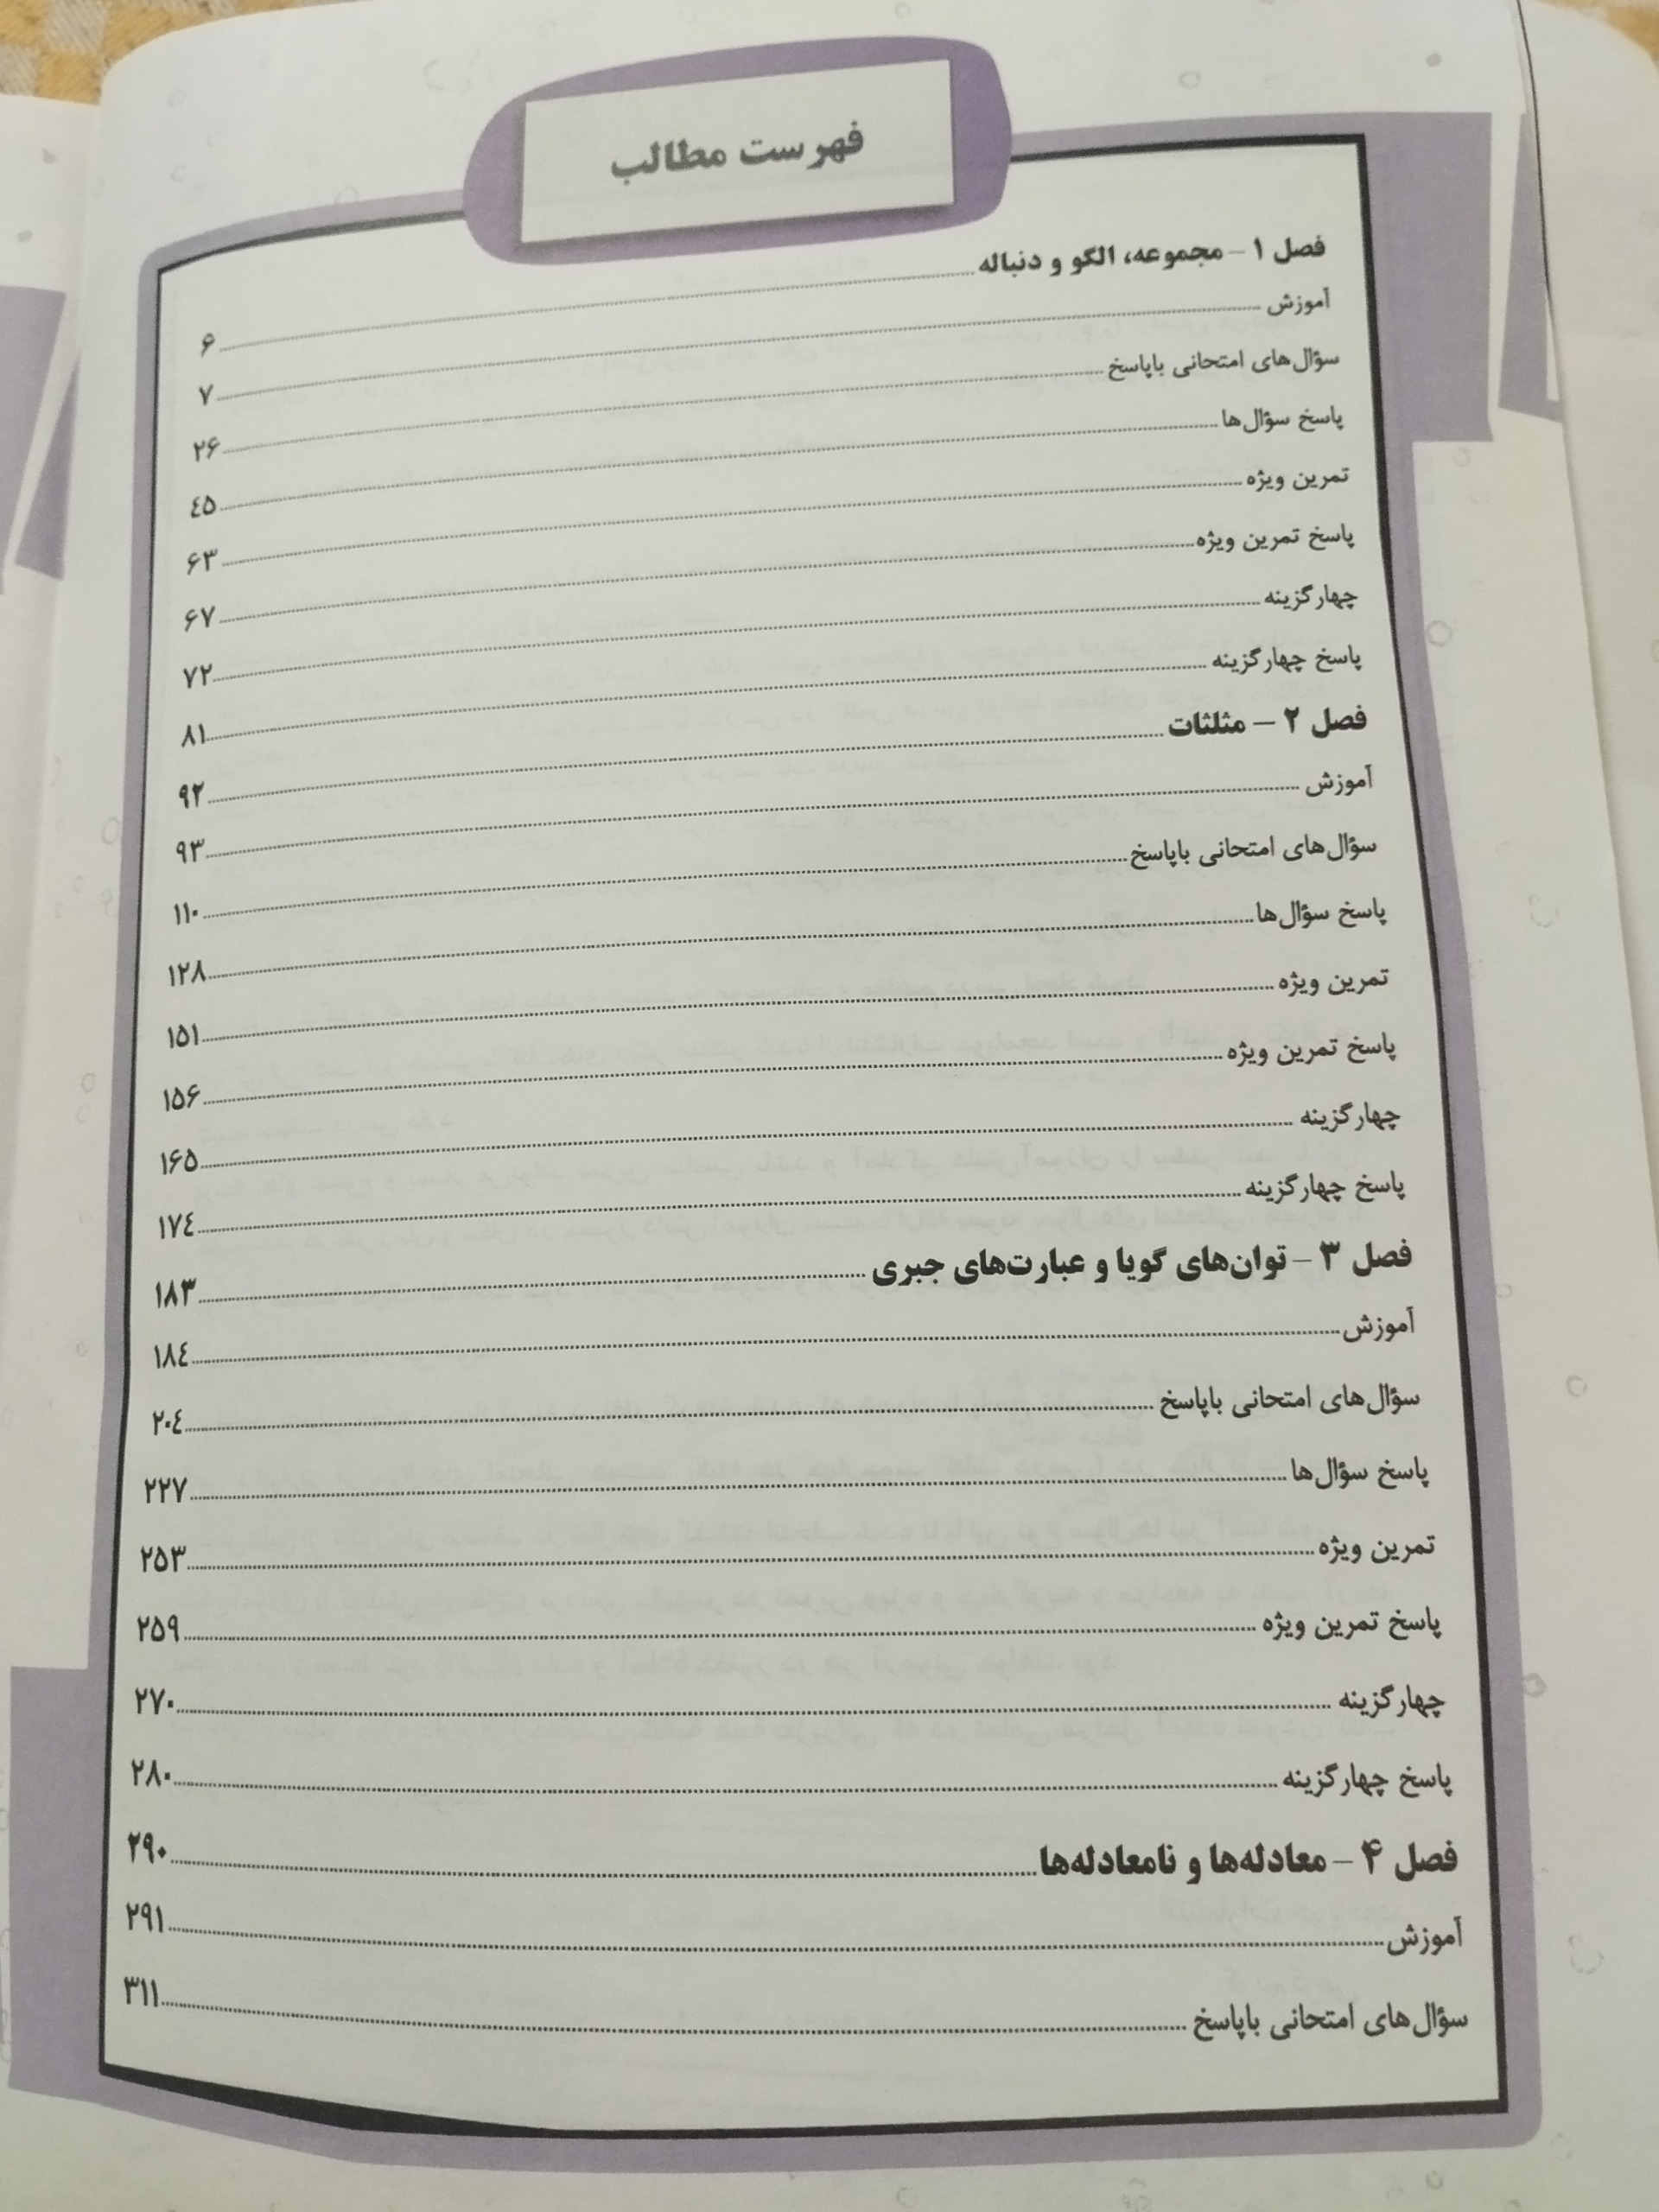 فهرست مطالب
فصل ۱ – مجموعه، الگو و دنباله ........ ۶
آموزش ........ ۷
سؤال‌های امتحانی باپاسخ ........ ۲۶
پاسخ سؤال‌ها ........ ٤۵
تمرین ویژه ........ ۶۳
پاسخ تمرین ویژه ........ ۶۷
چهارگزینه ........ ۷۲
پاسخ چهارگزینه ........ ۸۱
فصل ۲ – مثلثات ........ ۹۲
آموزش ........ ۹۳
سؤال‌های امتحانی باپاسخ ........ ۱۱۰
پاسخ سؤال‌ها ........ ۱۲۸
تمرین ویژه ........ ۱۵۱
پاسخ تمرین ویژه ........ ۱۵۶
چهارگزینه ........ ۱۶۵
پاسخ چهارگزینه ........ ۱۷٤
فصل ۳ – توان‌های گویا و عبارت‌های جبری ........ ۱۸۳
آموزش ........ ۱۸٤
سؤال‌های امتحانی باپاسخ ........ ۲۰٤
پاسخ سؤال‌ها ........ ۲۲۷
تمرین ویژه ........ ۲۵۳
پاسخ تمرین ویژه ........ ۲۵۹
چهارگزینه ........ ۲۷۰
پاسخ چهارگزینه ........ ۲۸۰
فصل ۴ – معادله‌ها و نامعادله‌ها ........ ۲۹۰
آموزش ........ ۲۹۱
سؤال‌های امتحانی باپاسخ ........ ۳۱۱